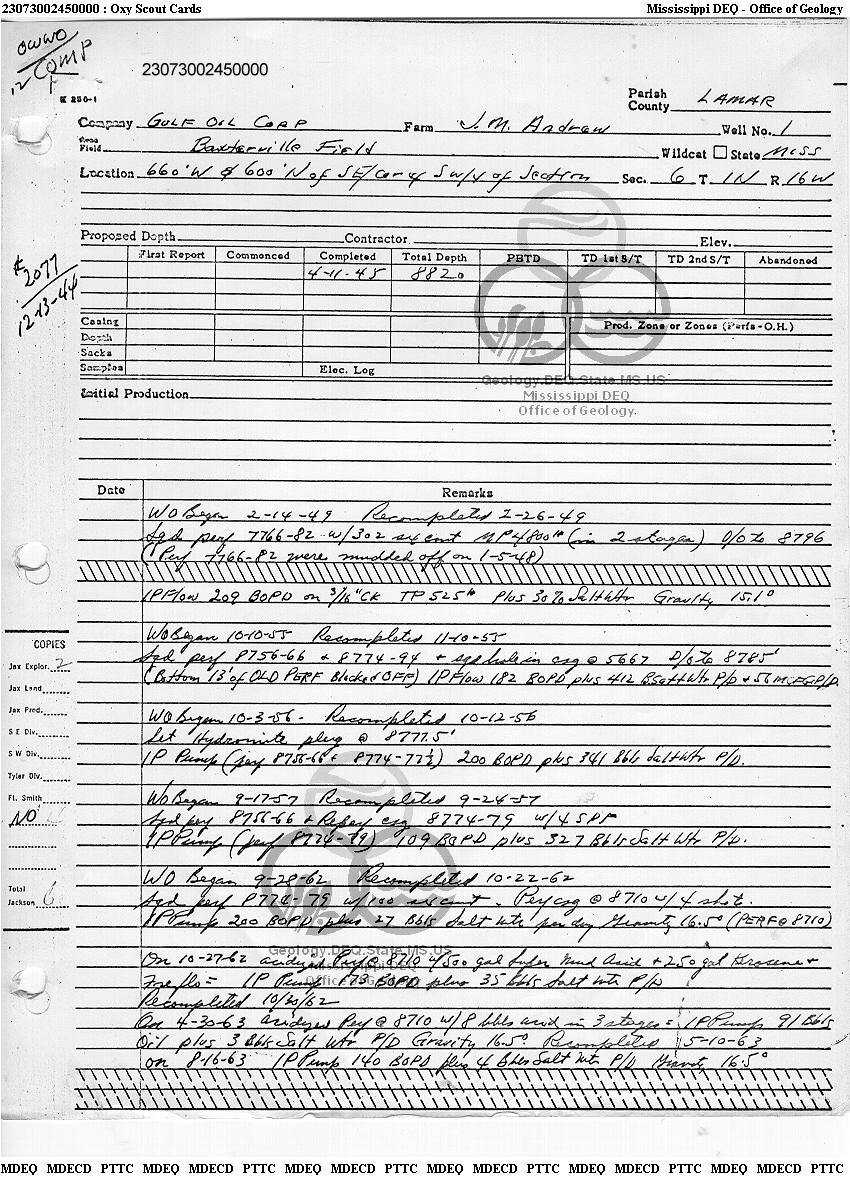 23073002450000 : Oxy Scout Cards Mississippi DEQ - Office of Geology
OWWO
12 COMP
F
23073002450000
K 250-1
Parish
County LAMAR
Company GULF OIL CORP Farm J. M. Andrew Well No. 1
Area
Field Baxterville Field Wildcat State MISS
Location 660'W & 600'N of SE/cor of SW/4 of Section Sec. 6 T. 1N R. 16W
Proposed Depth Contractor Elev.
First Report Commenced Completed Total Depth PBTD TD 1st S/T TD 2nd S/T Abandoned
4-11-45 8820
# 2077
12-13-44
Casing Prod. Zone or Zones (Perfs-O.H.)
Depth
Sacks
Samples Elec. Log
Geology.DEQ.State.MS.US
Mississippi DEQ
Office of Geology.
Initial Production
Date Remarks
WO Began 2-14-49 Recompleted 2-26-49
Sqd perf 7766-82 w/302 sx cmt MP4800# (in 2 stages) D/O to 8796
(Perf 7766-82 were mudded off on 1-5-48)
IP Flow 209 BOPD on 3/16" CK TP 525# Plus 30% Salt Wtr Gravity 15.1°
WO Began 10-10-55 Recompleted 11-10-55
Sqd perf 8756-66 & 8774-94 & sqd hole in csg @ 5667 D/O to 8785'
(Bottom 13' of OLD PERF Blocked OFF) IP Flow 182 BOPD plus 412 B Salt Wtr P/D + 56 MCFGP/D.
WO Began 10-3-56 - Recompleted 10-12-56
Set Hydromite plug @ 8777.5'
IP Pump (perf 8756-66 & 8774-77½) 200 BOPD plus 341 Bbls Salt Wtr P/D.
WO Began 9-17-57 Recompleted 9-24-57
Sqd perf 8756-66 & Reperf csg 8774-79 w/4 SPF
IP Pump (perf 8774-79) 109 BOPD plus 327 Bbls Salt Wtr P/D.
WO Began 9-28-62 Recompleted 10-22-62
Sqd perf 8774-79 w/100 sx cmt. Perf csg @ 8710 w/4 shots.
IP Pump 200 BOPD plus 27 Bbls Salt Wtr per day Gravity 16.5° (PERF @ 8710)
On 10-27-62 acidized Perf @ 8710 w/500 gal Super Mud Acid + 250 gal Kerosene +
= IP Pump 173 BOPD plus 35 bbls Salt Wtr P/D
Recompleted 10/30/62
On 4-30-63 acidized Perf @ 8710 w/8 bbls acid in 3 stages = IP Pump 91 Bbls
Oil plus 3 Bbls Salt Wtr P/D Gravity 16.5° Recompleted 5-10-63
on 8-16-63 IP Pump 140 BOPD plus 4 Bbls Salt Wtr P/D Gravity 16.5°
COPIES
Jax Explor. 2
Jax Land
Jax Prod.
S E Div.
S W Div.
Tyler Div.
Ft. Smith
NO 4
Total
Jackson 6
Geology.DEQ.State.MS.US
Mississippi DEQ
Office of Geology.
MDEQ MDECD PTTC MDEQ MDECD PTTC MDEQ MDECD PTTC MDEQ MDECD PTTC MDEQ MDECD PTTC MDEQ MDECD PTTC